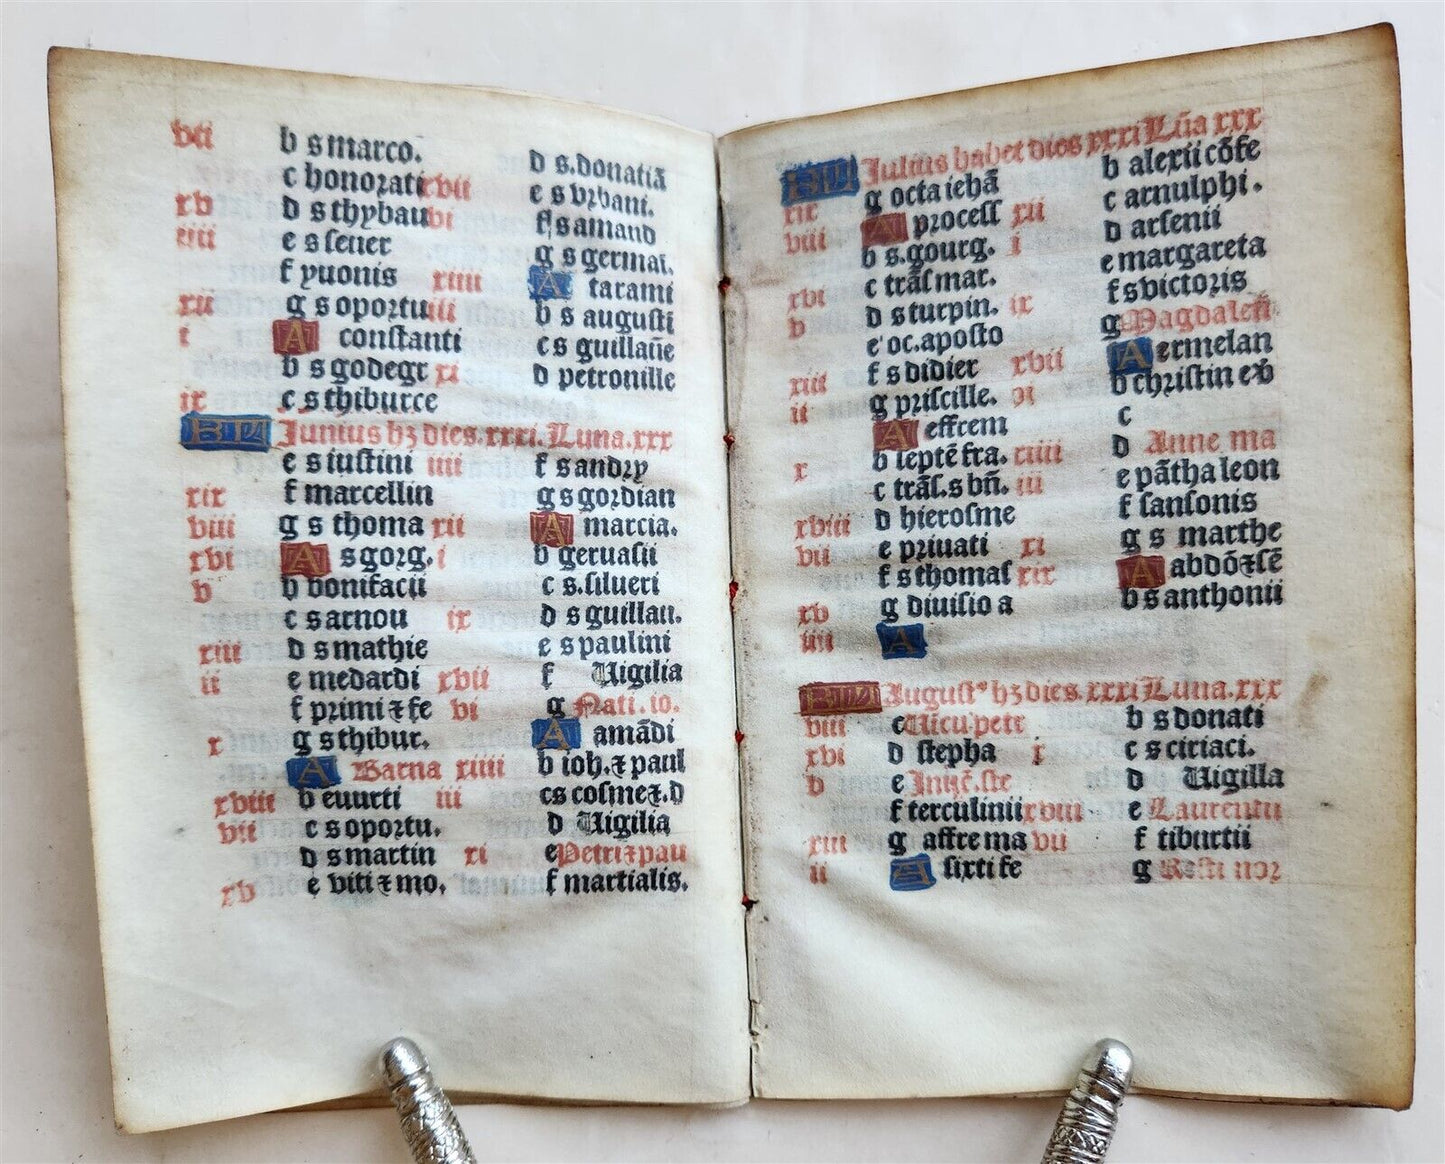 vii b s marco.
c honorati
xv d s thybau
iiii e s sener
f yuonis
xii g s oportu
i A constanti
b s godegr
ix c s thiburce
xvii d s. donatiā
vi e s vrbani.
f s amand
g s germai.
xiiii A tarami
iii b s augusti
c s guillaūe
xi d petronille
KL Junius hz dies. xxxi. Luna. xxx
e s iustini
xix f marcellin
viii g s thoma
xvi A s gorg.
v b bonifacii
c s arnou
xiii d s mathie
ii e medardi
f primi ⁊ fe
x g s thibur.
A Barna
xviii b euurti
vii c s oportu.
d s martin
xv e viti ⁊ mo.
iiii f s andry
g s gordian
xii A marcia.
i b geruasii
c s. silueri
ix d s guillau.
e s paulini
xvii f Uigilia
vi g Nati. io.
A amādi
xiiii b ioh. ⁊ paul
iii c s cosme ⁊. d
d Uigilia
xi e Petri ⁊ pau
f martialis.
KL Julius habet dies xxxi Lūa xxx
xix g octa iehā
viii A process
b s. gourg.
xvi c trās mar.
v d s turpin.
e oc. aposto
xiii f s didier
ii g priscille.
A effrem
x b septē fra.
c trās. s bn̄.
xviii d hierosme
vii e priuati
f s thomas
xv g diuisio a
iiii A
b alexii cōfe
xii c arnulphi.
i d arsenii
e margareta
ix f s victoris
g Magdalen
xvii A ermelan
b christin e v
vi c
d Anne ma
xiiii e pātha leon
iii f sansonis
g s marthe
xi A abdō ⁊ sē
xix b s anthonii
KL August⁹ hz dies. xxxi Luna. xxx
viii c Uicu petr
xvi d stepha
v e Inuē. ste
f terculinii
xiii g affre ma
ii A sixti fe
b s donati
x c s ciriaci.
d Uigilla
xviii e Laurentii
vii f tiburtii
g